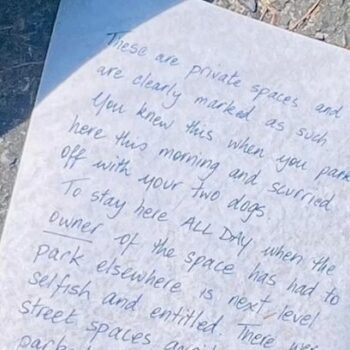 These are private spaces and
are clearly marked as such
You knew this when you park
here this morning and scurried
off with your two dogs.
To stay here ALL DAY when the
owner of the space has had to
park elsewhere is next level
selfish and entitled. There wer
street spaces
park